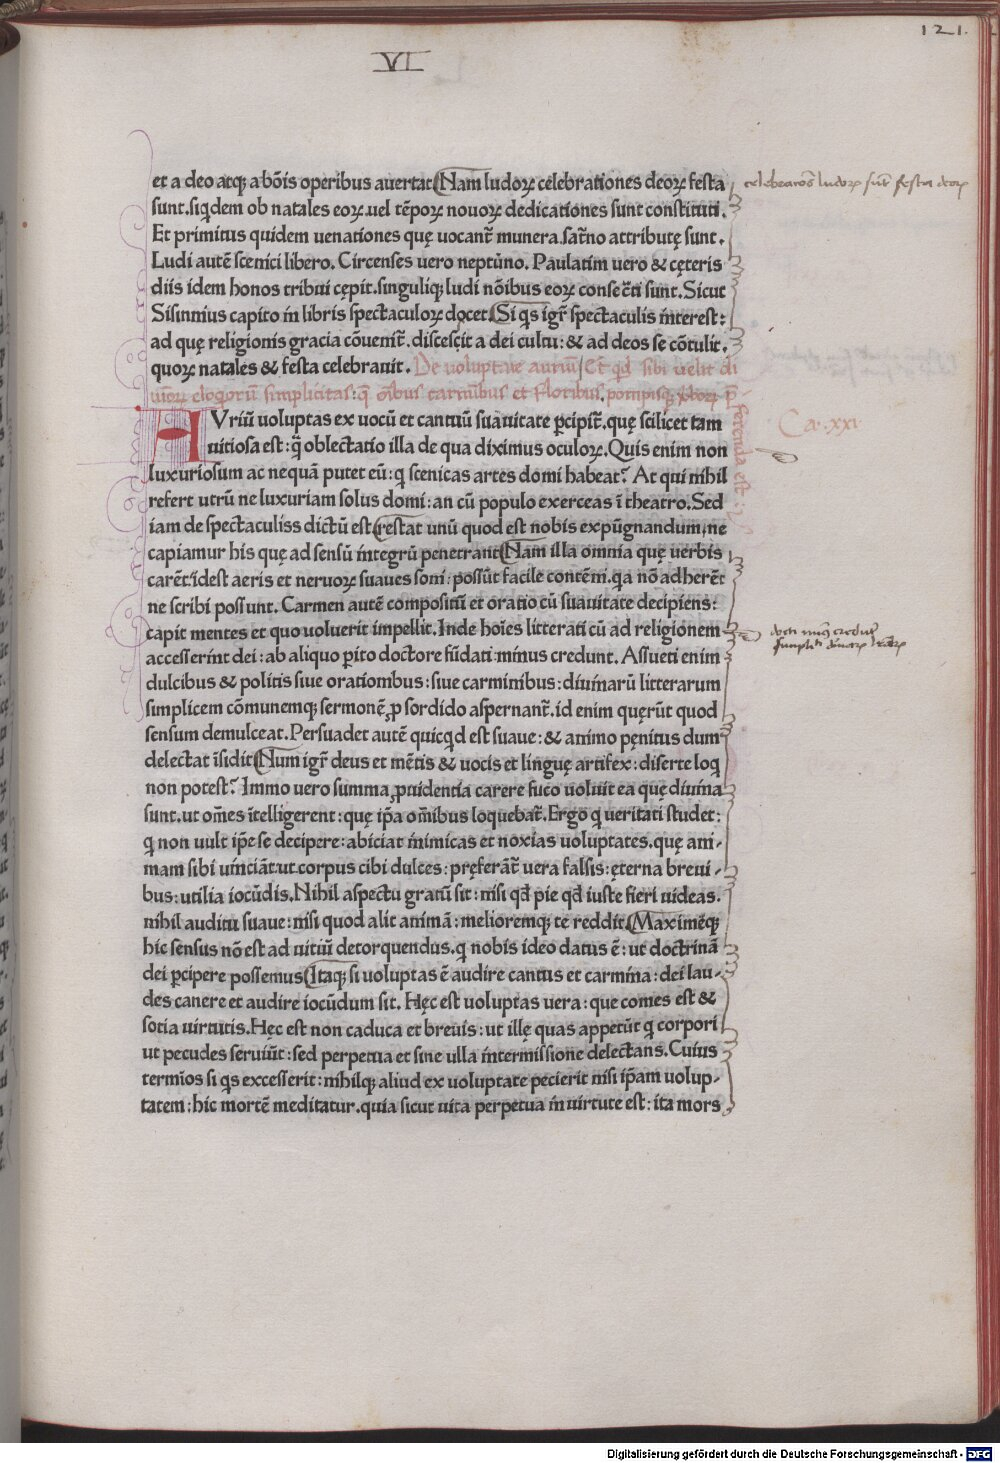 121.
VI
et a deo atq; a bōis operibus auertat. Nam ludoꝝ celebrationes deoꝝ festa
celebratōes ludoꝝ sūt festa deoꝝ
sunt. siqdem ob natales eoꝝ. uel tēpoꝝ nouoꝝ dedicationes sunt constituti.
Et primitus quidem uenationes quę uocant᷑ munera sat᷑no attributę sunt.
Ludi autē scenici libero. Circenses uero neptūno. Paulatim uero & cęteris
diis idem honos tribui cępit. singuliq; ludi nōibus eoꝝ consec̄ti sunt. Sicut
Sisinnius capito in libris spectaculoꝝ docet. Si qs igr̄ spectaculis interest:
ad quę religionis gracia cōuenit᷑. discescit a dei cultu: & ad deos se cōtulit.
quoꝝ natales & festa celebrauit. De voluptate auriū / Et qd sibi velit di
uinoꝝ eloqorū simplicitas: qę oībus carmībus et floribus. pompisq; rhetoꝝ p̄
ferenda est:
Ca. xxi.
AVriū uoluptas ex uocū et cantuū suauitate ꝑcipit᷑. quę scilicet tam
uitiosa est: q̄ oblectatio illa de qua diximus oculoꝝ. Quis enim non
luxuriosum ac nequā putet eū: q scenicas artes domi habeat? At qui nihil
refert utrū ne luxuriam solus domi: an cū populo exerceas ī theatro. Sed
iam de spectaculiss dictū est. restat unū quod est nobis expūgnandum, ne
capiamur his quę ad sensū integrū penetrant. Nam illa omnia quę uerbis
carēt. idest aeris et neruoꝝ suaues soni: possūt facile contēni. qa nō adherēt
ne scribi possunt. Carmen autē compositū et oratio cū suauitate decipiens:
capit mentes et quo uoluerit impellit. Inde hoīes litterati cū ad religionem
docti minꝰ credūt
simplici
accesserint dei: ab aliquo ꝑito doctore fūdati minus credunt. Assueti enim
dulcibus & politis siue orationibus: siue carminibus: diuinarū litterarum
simplicem cōmunemq; sermonē ꝓ sordido aspernant᷑. id enim quęrūt quod
sensum demulceat. Persuadet autē quicqd est suaue: & animo pęnitus dum
delectat īsidit. Num igr̄ deus et mētis & uocis et linguę artifex: diserte loq
non potest? Immo uero summa ꝓuidentia carere fuco uoluit ea quę diuina
sunt. ut om̄es ītelligerent: quę ip̄a om̄ibus loquebat᷑. Ergo q ueritati studet:
q non uult ip̄e se decipere: abiciat inimicas et noxias uoluptates. quę ani-
mam sibi uinciāt. ut corpus cibi dulces: pręferāt᷑ uera falsis: ęterna breui-
bus: utilia iocūdis. Nihil aspectu gratū sit: nisi qd̄ pie qd̄ iuste fieri uideas.
nihil auditu suaue: nisi quod alit animā: melioremq; te reddit. Maximēq;
hic sensus nō est ad uitiū detorquendus. q nobis ideo datus ē: ut doctrinā
dei ꝑcipere possemus. Itaq; si uoluptas ē audire cantus et carmina: dei lau-
des canere et audire iocūdum sit. Hęc est uoluptas uera: que comes est &
sotia uirtutis. Hęc est non caduca et breuis: ut illę quas appetūt q corpori
ut pecudes seruiūt: sed perpetua et sine ulla intermissione delectans. Cuius
termīos si qs excesserit: nihilq; aliud ex uoluptate pecierit nisi ip̄am uolup-
tatem: hic mortē meditatur. quia sicut uita perpetua in uirtute est: ita mors
Digitalisierung gefördert durch die Deutsche Forschungsgemeinschaft - DFG